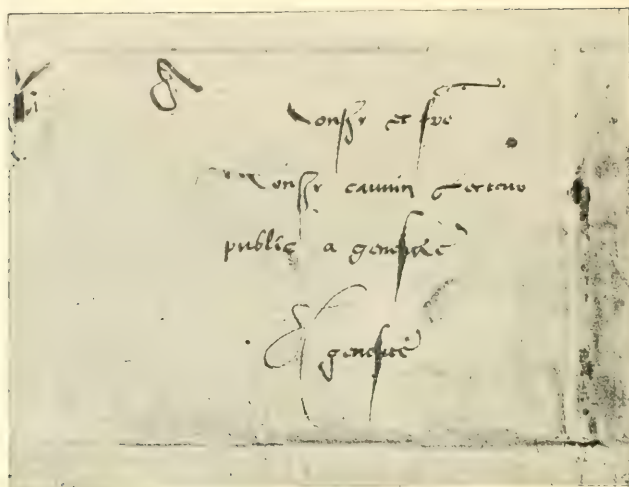 A
Monsr et fre
Monsr cauvin Lecteur
public a genesve
A genesve